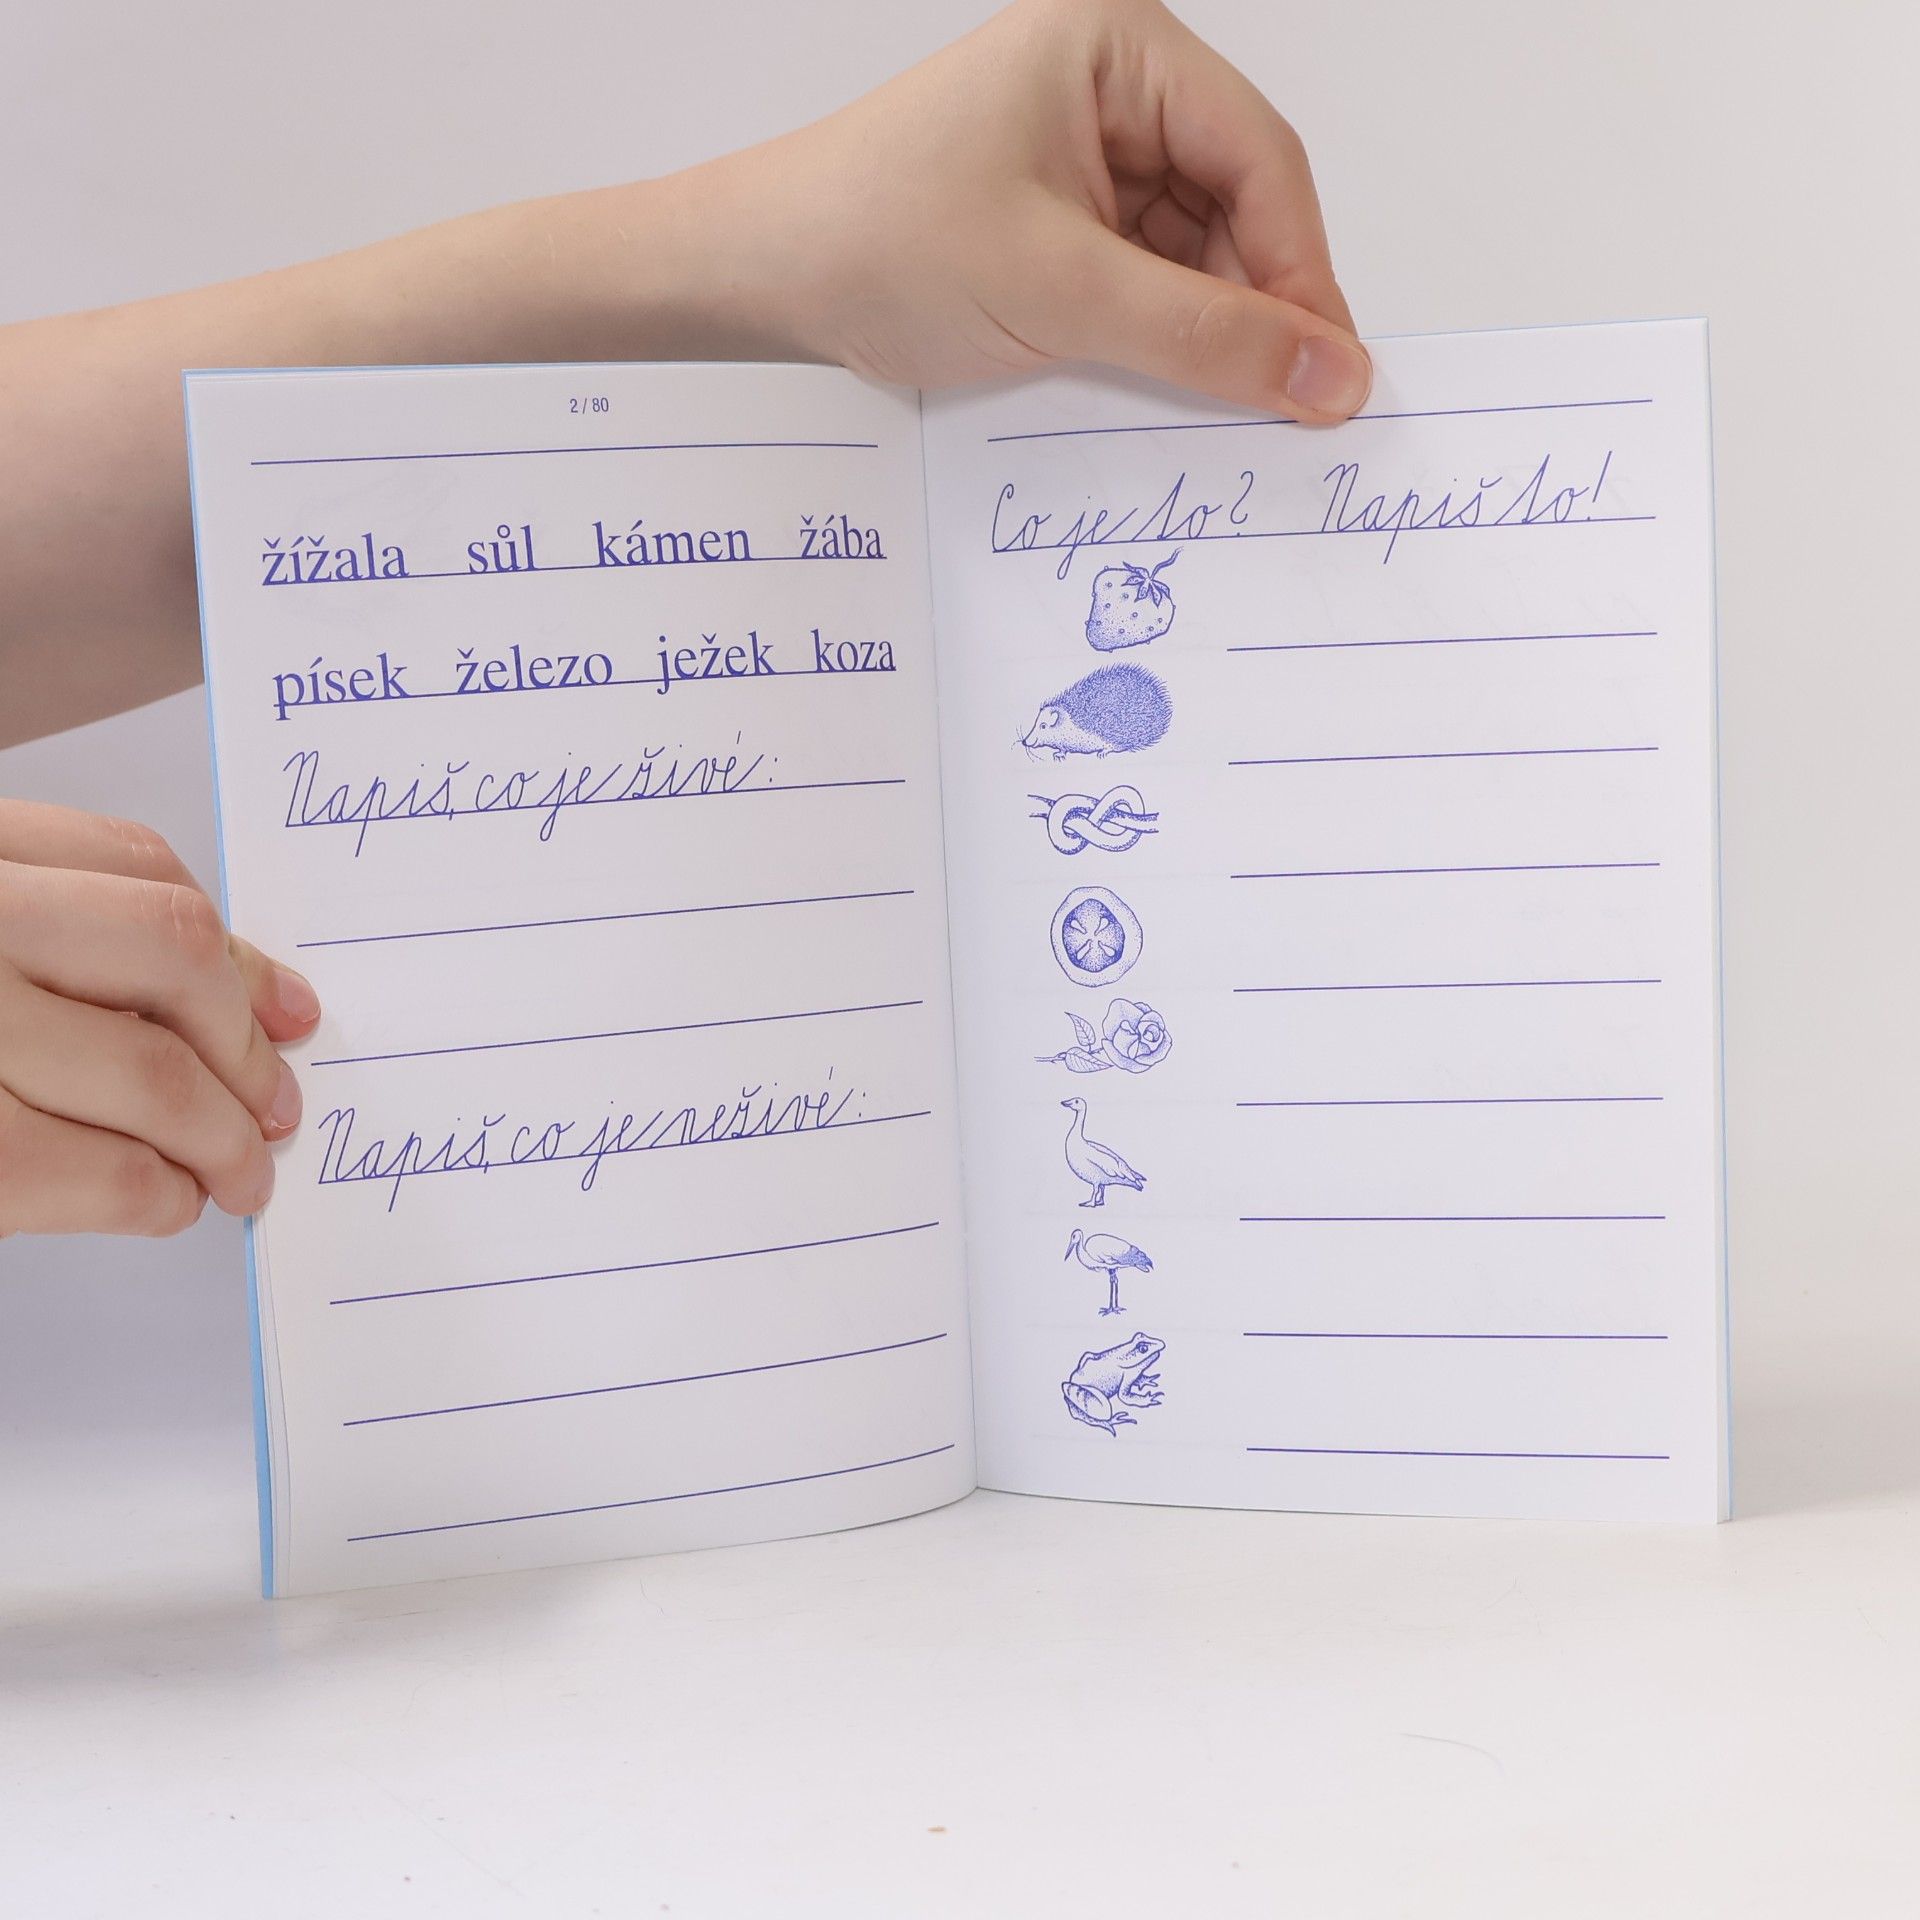 2 / 80
žížala sůl kámen žába
písek železo ježek koza
Napiš, co je živé:
Napiš, co je neživé:
Co je to? Napiš to!